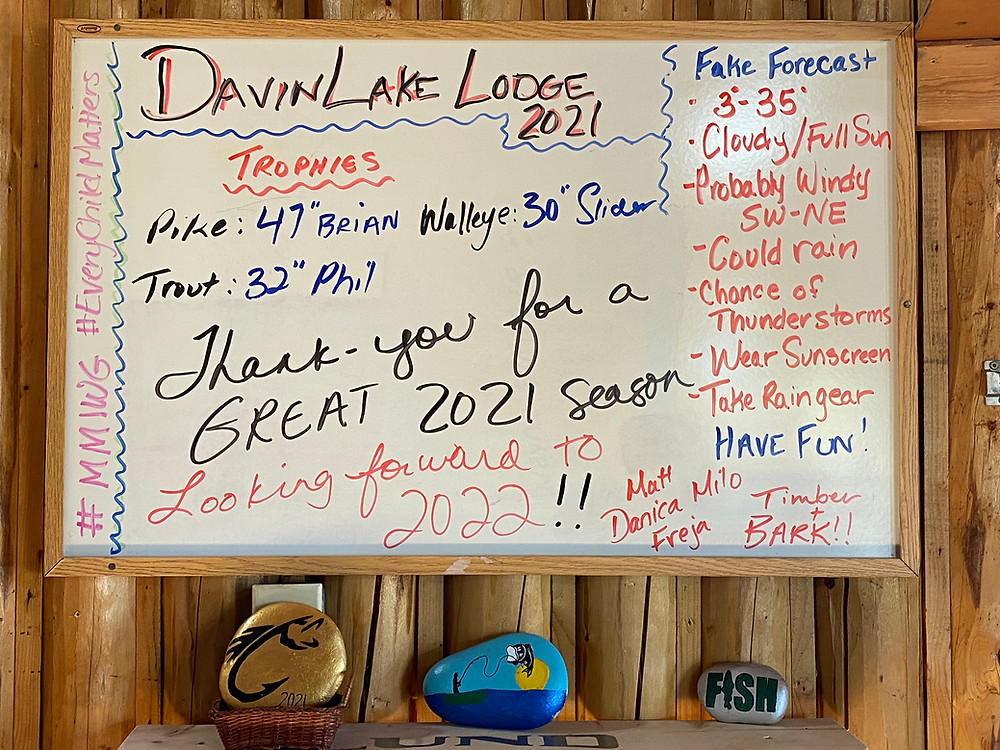 DAVIN LAKE LODGE
2021
TROPHIES
Pike: 47" BRIAN Walleye: 30" Slider
Trout: 32" Phil
Thank-you for a
GREAT 2021 season
Looking forward to
2022 !!
Matt Milo
Danica
Freja
Timber
+
BARK!!
Fake Forecast
· 3°-35°
· Cloudy/Full Sun
- Probably Windy
SW-NE
- Could rain
- Chance of
Thunderstorms
- Wear Sunscreen
- Take Raingear
HAVE FUN!
# MMIWG #EveryChildMatters
2021
FISH
LUND